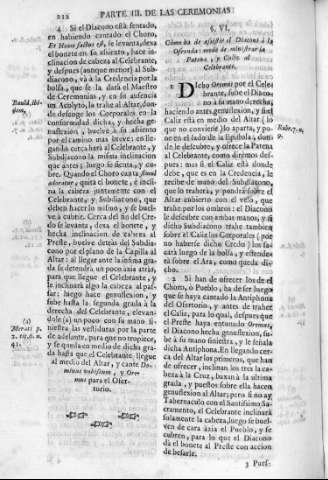 212 PARTE III. DE LAS CEREMONIAS
4 Si el Diacono está sentado,
en haviendo cantado el Choro,
Et Homo factus est, se levanta, deva
el bonete en su assiento, hace in-
clinacion de cabeza al Celebrante,
y despues (aunque menor) al Sub-
diacono, và à la Credencia por la
bolsa, que se la dará el Maestro
de Ceremonias, y en su ausencia
un Acolyto, la trahe al Altar, don-
de descoge los Corporales en la
conformidad dicha, y hecha ge-
nuflexion, buelve à su assiento
por el camino mas breve: en lle-
gando cerca hará al Celebrante, y
Subdiacono la misma inclinacion
que antes; luego se sienta, y cu-
bre. Quando el Choro canta simul
adoratur, quita el bonete, è incli-
na la cabeza juntamente con el
Celebrante, y Subdiacono, que
deben hacer lo mismo, y se buel-
ve à cubrir. Cerca del fin del Cre-
do se levanta, dexa el bonete, y
hecha inclinacion de cabeza al
Preste, buelve detràs del Subdia-
cono por el plano de la Capilla al
Altar: al llegar ante la infima gra-
da se detendrá un poco ázia atrás,
para que llegue el Celebrante, y
le inclinará algo la cabeza al pas-
sar; luego hace genuflexion, y
sube hasta la segunda grada à la
derecha del Celebrante, levan-
dole (a) un poco con su mano si-
niestra las vestiduras por la parte
de adelante, para que no tropiece,
y se queda en medio de dicha gra-
da hasta que el Celebrante llegue
al medio del Altar, y cante Do-
minus vobiscum, y Ore-
mus para el Ofer-
torio.
Bauld. ibi-
(a)
Merati p.
§. VI.
Còmo ha de assistir el Diacono à la
Ofrenda: modo de ministrar la
Patena, y Caliz al
Celebrante.
1 Dicho Oremus por el Cele-
brante, sube el Diaco-
no à su mano derecha;
haciendo antes genuflexion, y si el
Caliz està en medio del Altar (lo
que no conviene) lo aparta, y po-
ne en el lado de la Epistola, don-
de le descubre, y ofrece la Patena
al Celebrante, como dirémos des-
pues: mas si el Caliz está donde
debe, que es en la Credencia, le
recibe de mano del Subdiacono,
que lo traherá, y pondrá sobre el
Altar cubierto con el velo, que
trahe por los ombros: el Diacono
le descubre con ambas manos, y si
dicho Subdiacono trahe tambien
sobre el Caliz los Corporales (por
no haberse dicho Credo) los sa-
cará luego de la bolsa, y estenderá
sobre el Ara, como queda di-
cho.
2 Si han de ofrecer los de el
Choro, ò Pueblo, ha de ser luego
que se haya cantado la Antiphona
del Ofertorio, y antes de traher
el Caliz, para lo qual, despues que
el Preste haya entonado Oremus,
el Diacono hecha genuflexion, su-
be à su mano siniestra, y le señala
dicha Antiphona. En llegando cer-
ca del Altar los primeros, que han
de ofrecer, inclinan los tres la ca-
beza à la Cruz, baxan à la ultima
grada, y puestos sobre ella hacen
genuflexion al Altar; pero si no ay
Tabernaculo con el Santissimo Sa-
cramento, el Celebrante inclinará
solamente la cabeza, luego se buel-
ven de cara ázia el Pueblo, y se
cubren, para lo que el Diacono
dá el bonete al Preste con accion
de besarle.
3 Pues: